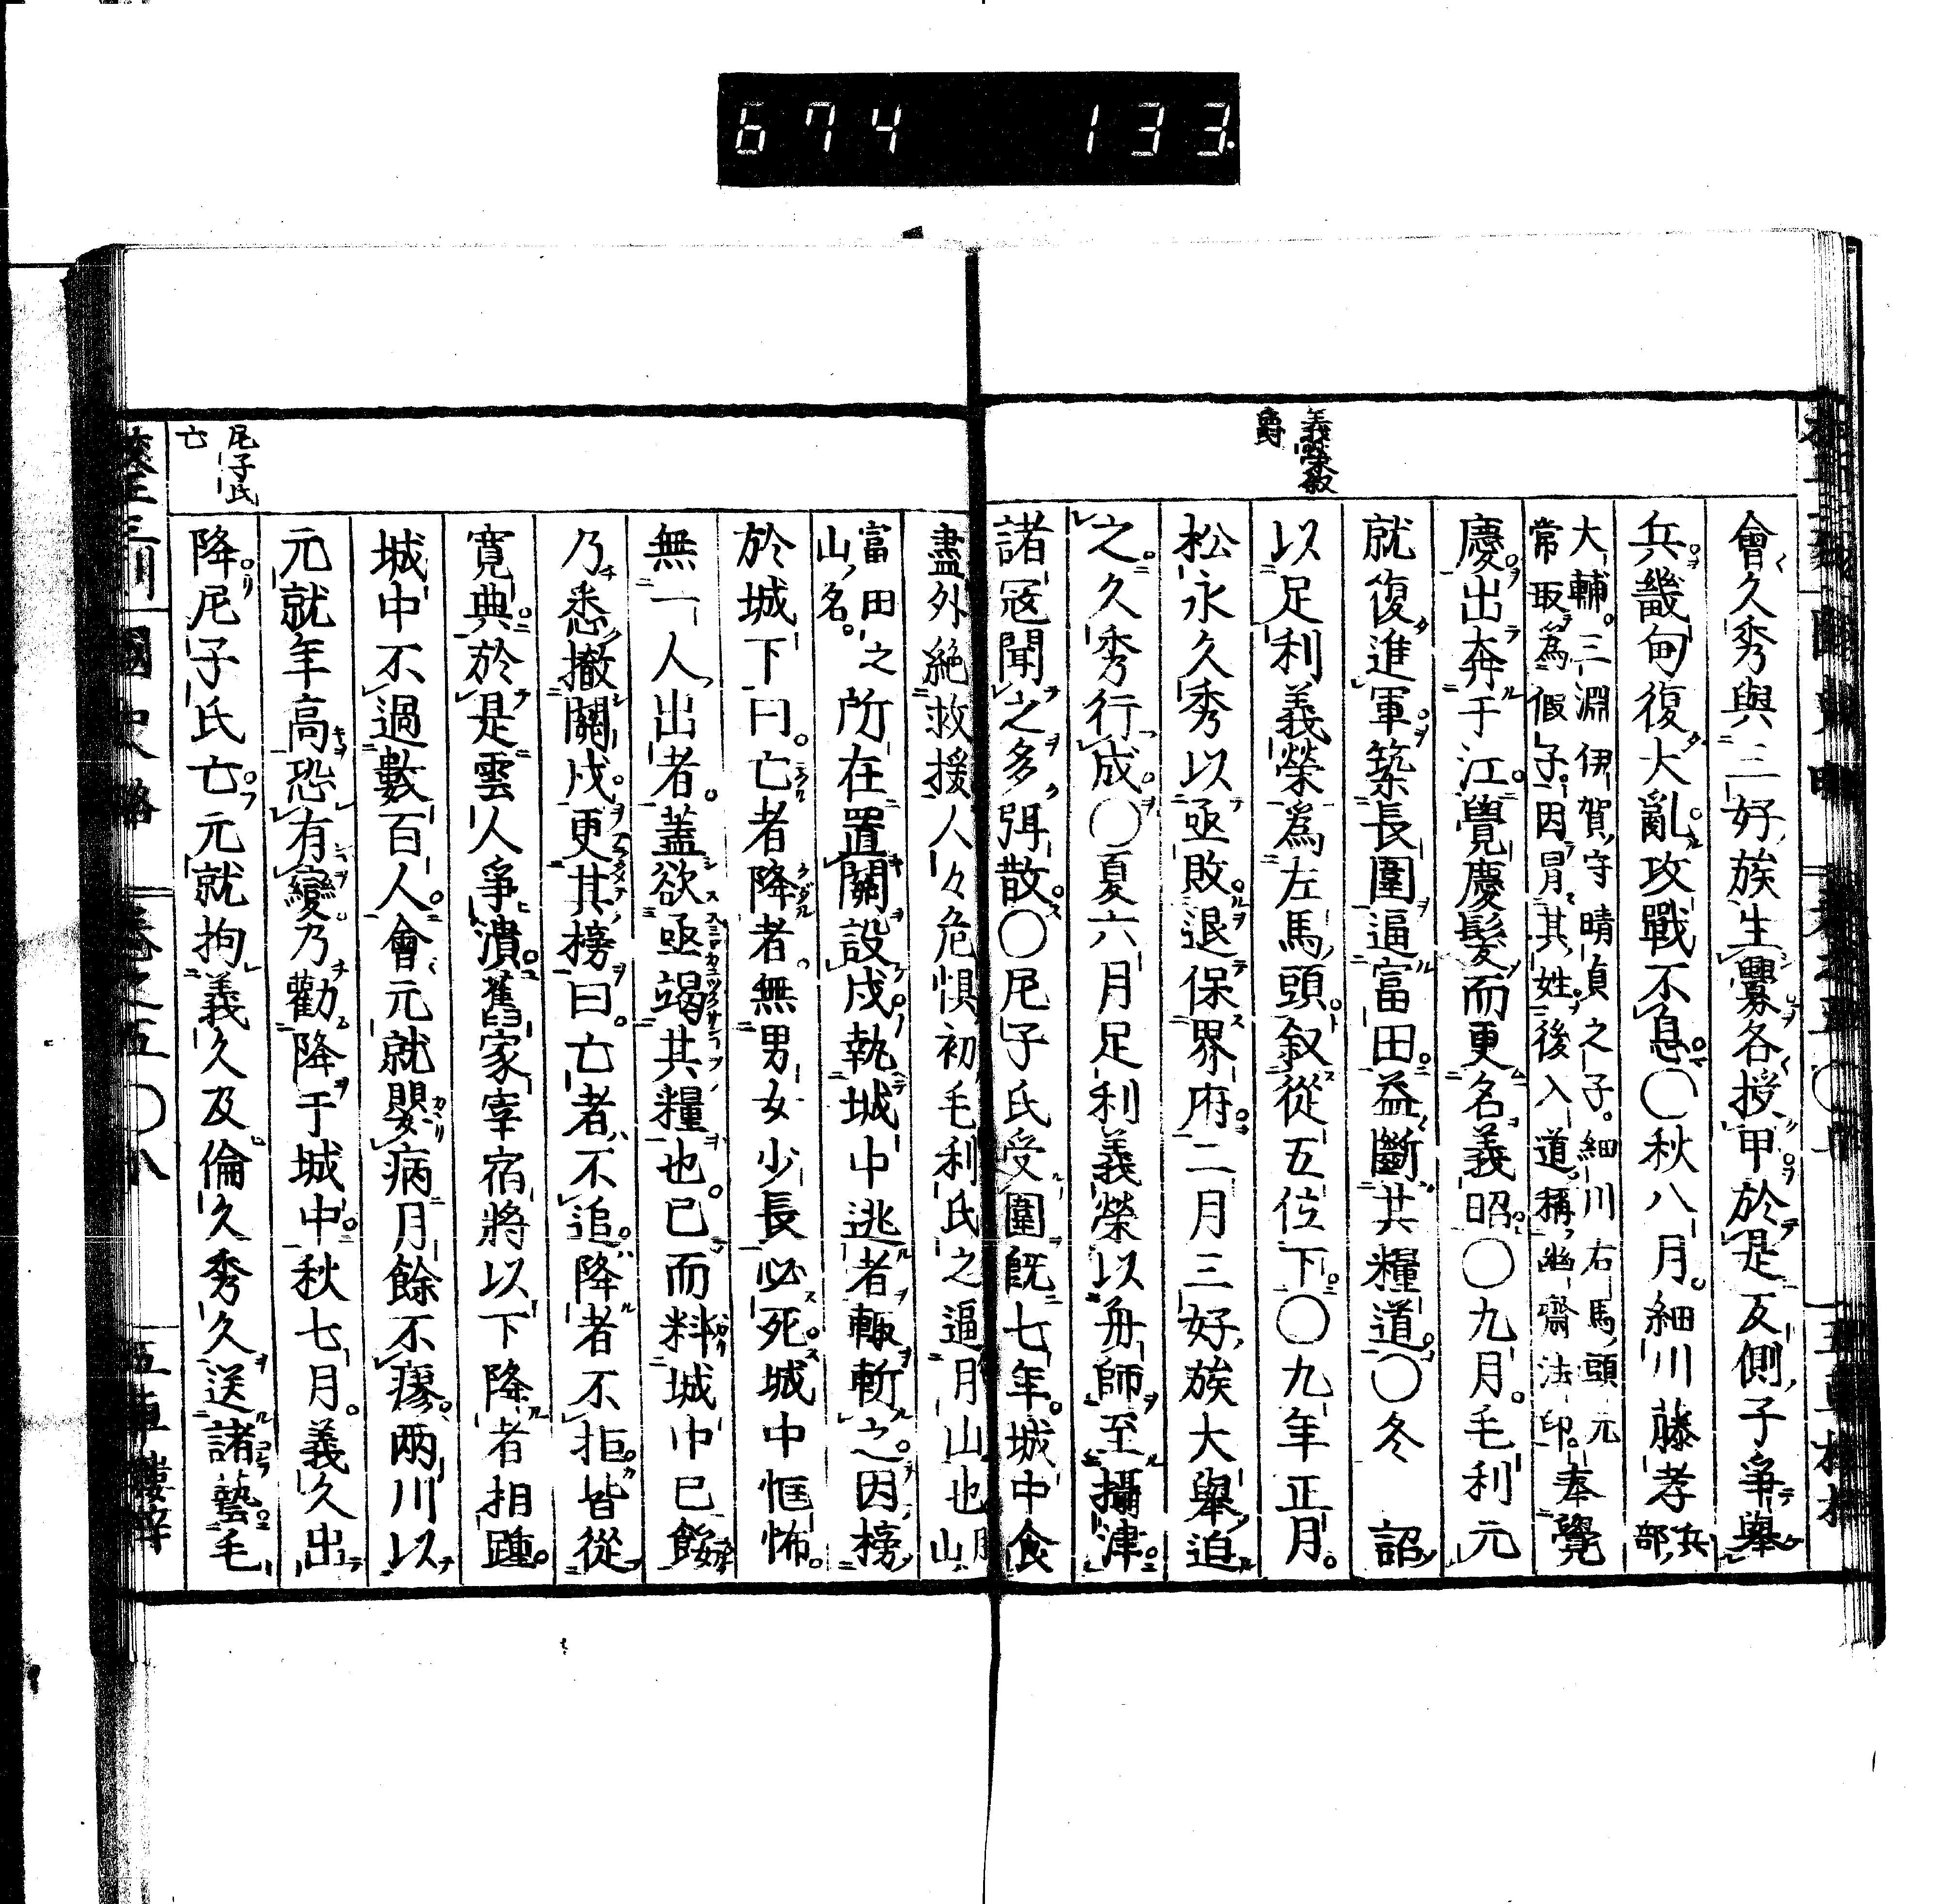 674 133
義榮敘
爵
會久秀與三好族生釁各授甲於是反側子爭舉
兵畿甸復大亂攻戰不息〇秋八月細川藤孝兵
部
大輔三淵伊賀守晴貞之子細川右馬頭元
常取為假子因冒其姓後入道稱幽齋法印奉覺
慶出奔于江覺慶髮而更名義昭〇九月毛利元
就復進軍築長圍逼富田益斷其糧道〇冬 詔
以足利義榮為左馬頭敘從五位下〇九年正月
松永久秀以亟敗退保界府二月三好族大舉迫
之久秀行成〇夏六月足利義榮以舟師至攝津
諸寇聞之多弭散〇尼子氏受圍既七年城中食
盡外絕救援人々危惧初毛利氏之逼月山也月
山
富田之
山名所在置關設戍執城中逃者輙斬之因榜
於城下曰亡者降者無男女少長必死城中恇怖
無一人出者蓋欲亟竭其糧也已而料城中已餒
乃悉撤關戍更其榜曰亡者不追降者不拒皆從
寬典於是雲人爭潰舊家宰宿將以下降者相踵
城中不過數百人會元就嬰病月餘不瘳兩川以
元就年高恐有變乃勸降于城中秋七月義久出
降尼子氏亡元就拘義久及倫久秀久送諸藝毛
尼子氏
亡
國史略
卷之五〇八
五車樓梓